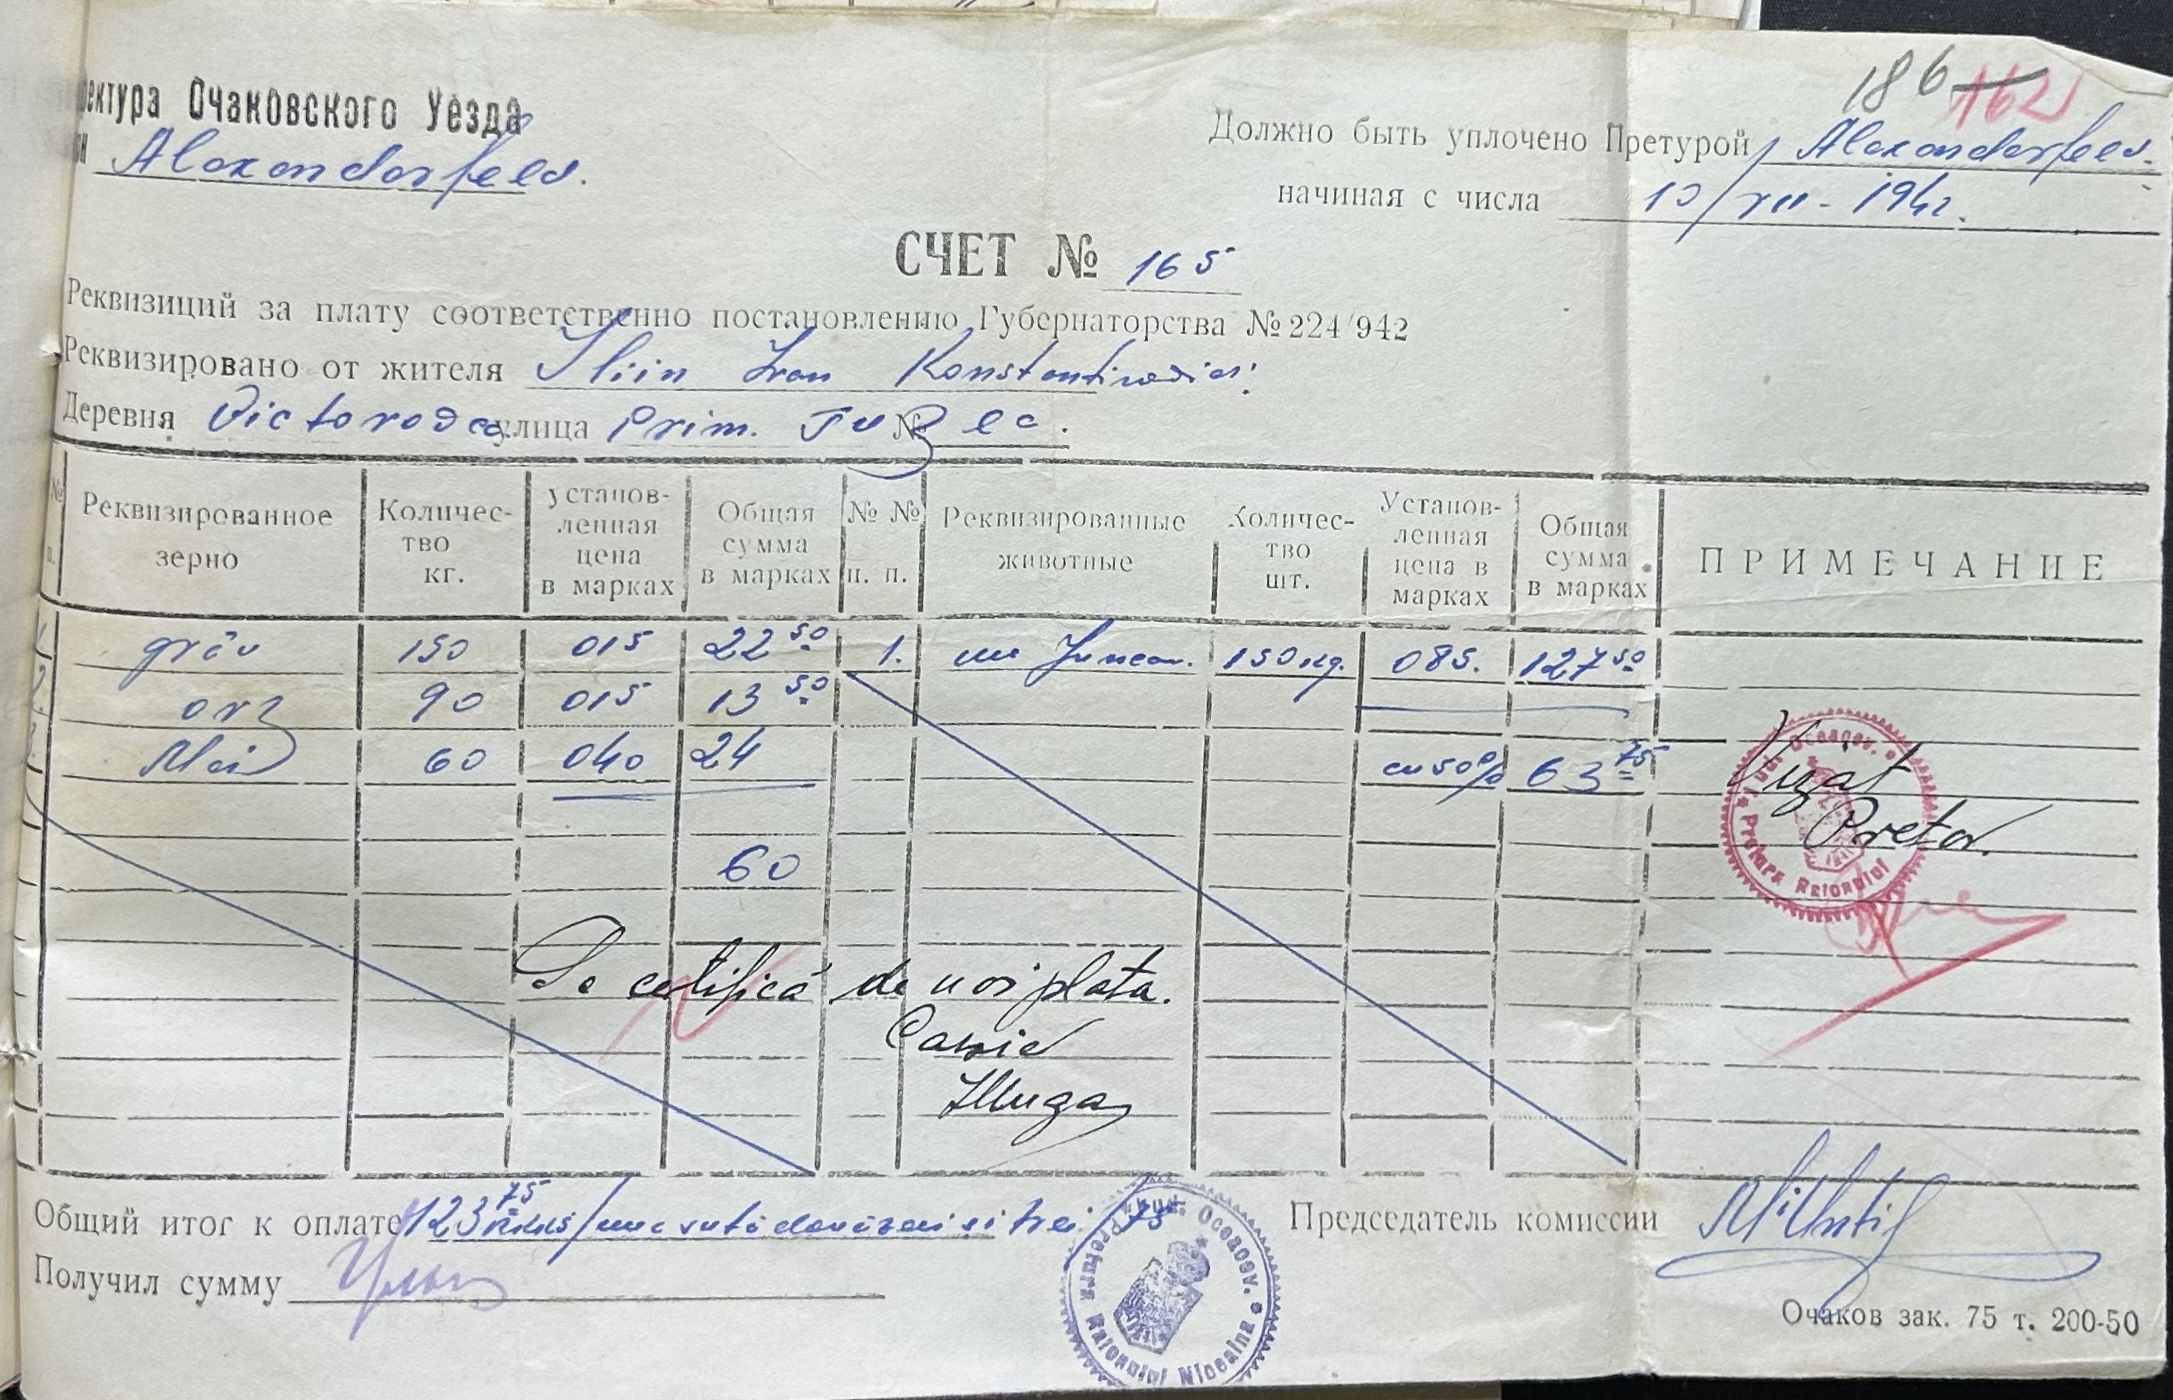 186 162
ректура Очаковского Уезда
он Alexanderfeld.
Должно быть уплочено Претурой Alexanderfeld.
начиная с числа 10/VII - 1942.
СЧЕТ № 165
Реквизиций за плату соответственно постановлению Губернаторства № 224/942
Реквизировано от жителя Iliin Ivan Konstantinovici
Деревня Victorovca улица Prim. №
№ п. Реквизированное зерно Количес-тво кг. установ-ленная цена в марках Общая сумма в марках №№ п. п. Реквизированные животные Количес-тво шт. Установ-ленная цена в марках Общая сумма в марках ПРИМЕЧАНИЕ
1 grâu 150 015 22 50 1. un Juncan. 150 kg. 085. 127 50
2 orz 90 015 13 50
3 Mei 60 040 24 cu 50% 63 75
Vizat
Pretor.
60
Se certifică de noi plata.
Общий итог к оплате 123 75 RKKS/una sută douăzeci si trei/75
Председатель комиссии
Получил сумму
Pretura Raionului Nicoaina Jud. Oceacov.
Pretura Raionului
Очаков зак. 75 т. 200-50